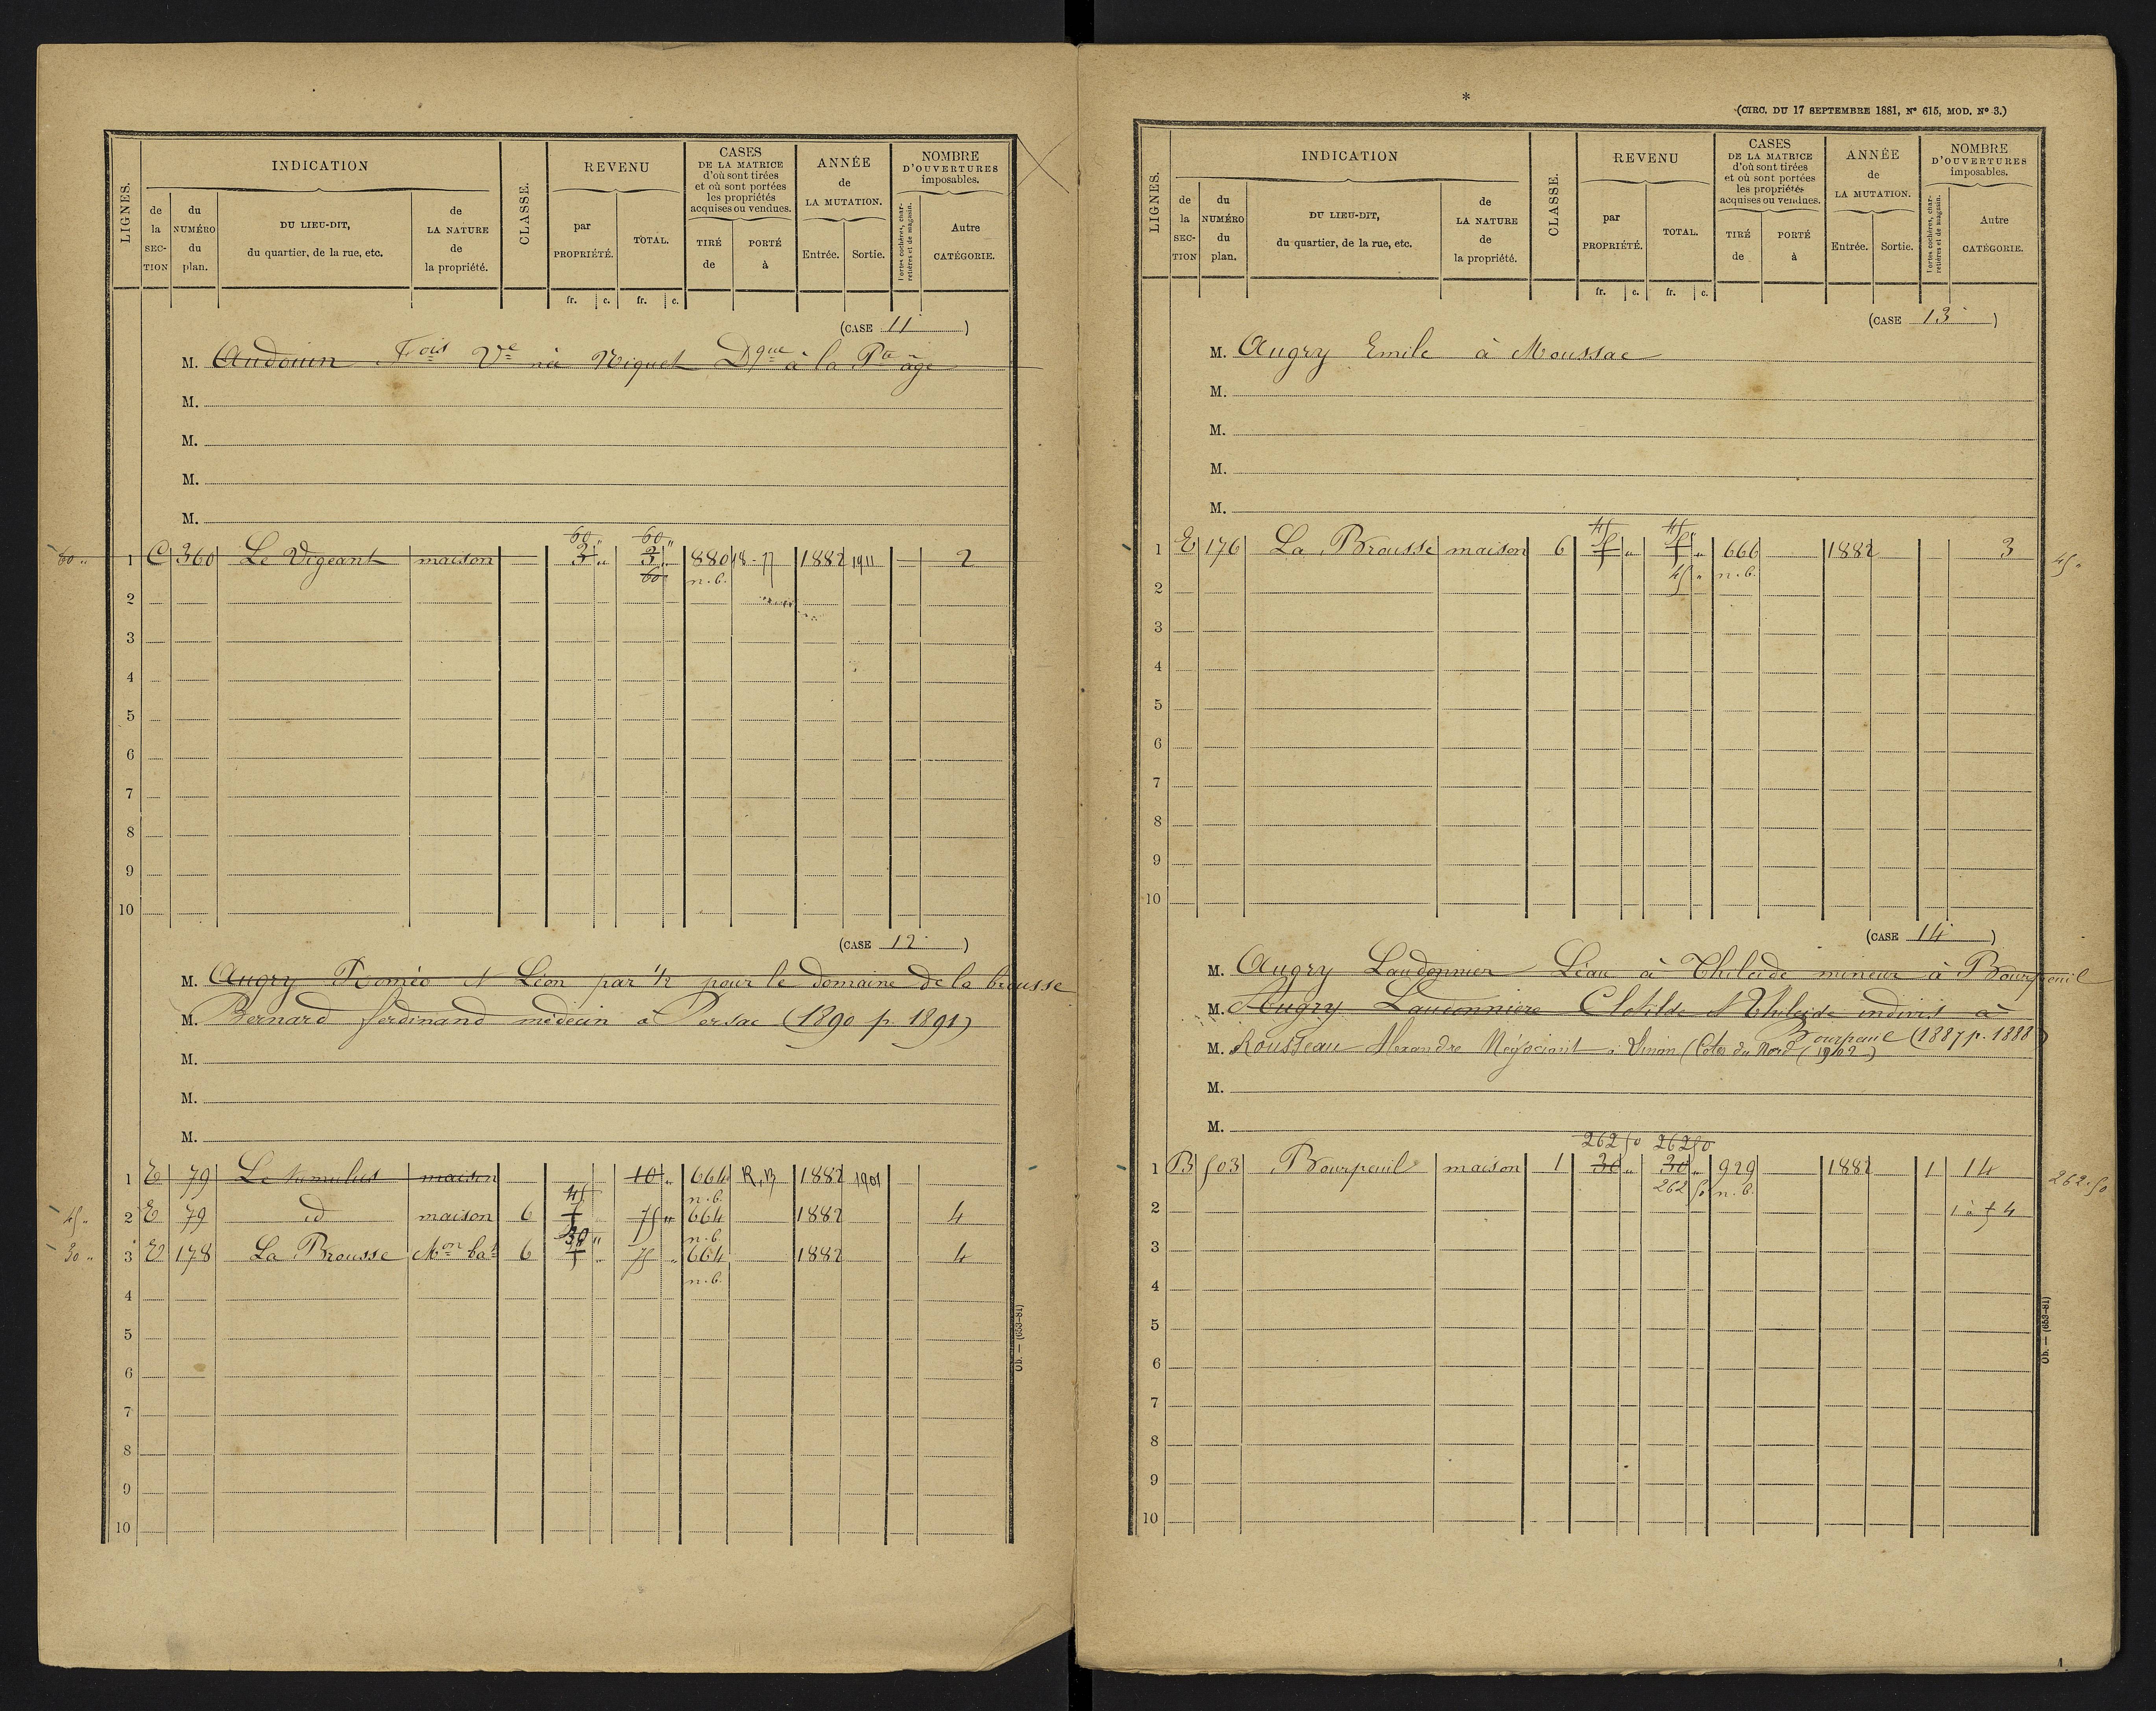 LIGNES.
INDICATION
de la SECTION
du NUMÉRO du plan.
DU LIEU-DIT, du quartier, de la rue, etc.
de LA NATURE de la propriété.
CLASSE.
REVENU
par PROPRIÉTÉ.
TOTAL.
CASES DE LA MATRICE d'où sont tirées et où sont portées les propriétés acquises ou vendues.
TIRÉ de
PORTÉ à
ANNÉE de LA MUTATION.
Entrée.
Sortie.
NOMBRE D'OUVERTURES imposables.
Portes cochères, charretières et de magasin.
Autre CATÉGORIE.
fr. c. fr. c.
(CASE 11)
M. Audouin Fois Ve née Niquet Dque à la Pte âge
M.
M.
M.
M.
60 „ 60 „
60 „ 1 C 360 Le Vigeant maison 3 „ 3 „ 880 18-77 1882 1911 2
60 n.b.
2
3
4
5
6
7
8
9
10
(CASE 12)
M. Augry Roméo et Léon par 1/2 pour le domaine de la brousse
M. Bernard ferdinand médecin à Persac (1890 p. 1891)
M.
M.
M.
1 E 79 Le maison 10 „ 664 R,B 1882 1901
45 n.b.
45 „ 2 E 79 id maison 6 75 „ 664 1882 4
30 „ n.b.
30 „ 3 E 178 La Brousse Mon bat 6 75 „ 664 1882 4
n.b.
4
5
6
7
8
9
10
Ob. — (653-81)
*
(CIRC. DU 17 SEPTEMBRE 1881, N° 615, MOD. N° 3.)
LIGNES.
INDICATION
de la SECTION
du NUMÉRO du plan.
DU LIEU-DIT, du quartier, de la rue, etc.
de LA NATURE de la propriété.
CLASSE.
REVENU
par PROPRIÉTÉ.
TOTAL.
CASES DE LA MATRICE d'où sont tirées et où sont portées les propriétés acquises ou vendues.
TIRÉ de
PORTÉ à
ANNÉE de LA MUTATION.
Entrée.
Sortie.
NOMBRE D'OUVERTURES imposables.
Portes cochères, charretières et de magasin.
Autre CATÉGORIE.
fr. c. fr. c.
(CASE 13)
M. Augry Emile à Moussac
M.
M.
M.
M.
45 45 „
1 E 176 La Brousse maison 6 „ „ 666 1882 3 45 „
45 „ n.b.
2
3
4
5
6
7
8
9
10
(CASE 14)
M. Augry Laudonnier à mineur à Bourpeuil
M. Augry Laudonniere Clotilde et indivis à
Bourpeuil (1887 p. 1888)
M. Rousseau Alexandre Négociant à Dinan (Cotes du Nord (1902)
M.
M.
262 50 262 50
1 B 503 Bourpeuil maison 1 30 „ 30 „ 929 1882 1 14 262.50
262 50 n.b.
2 1 à 4
3
4
5
6
7
8
9
10
Ob. — (653-81)